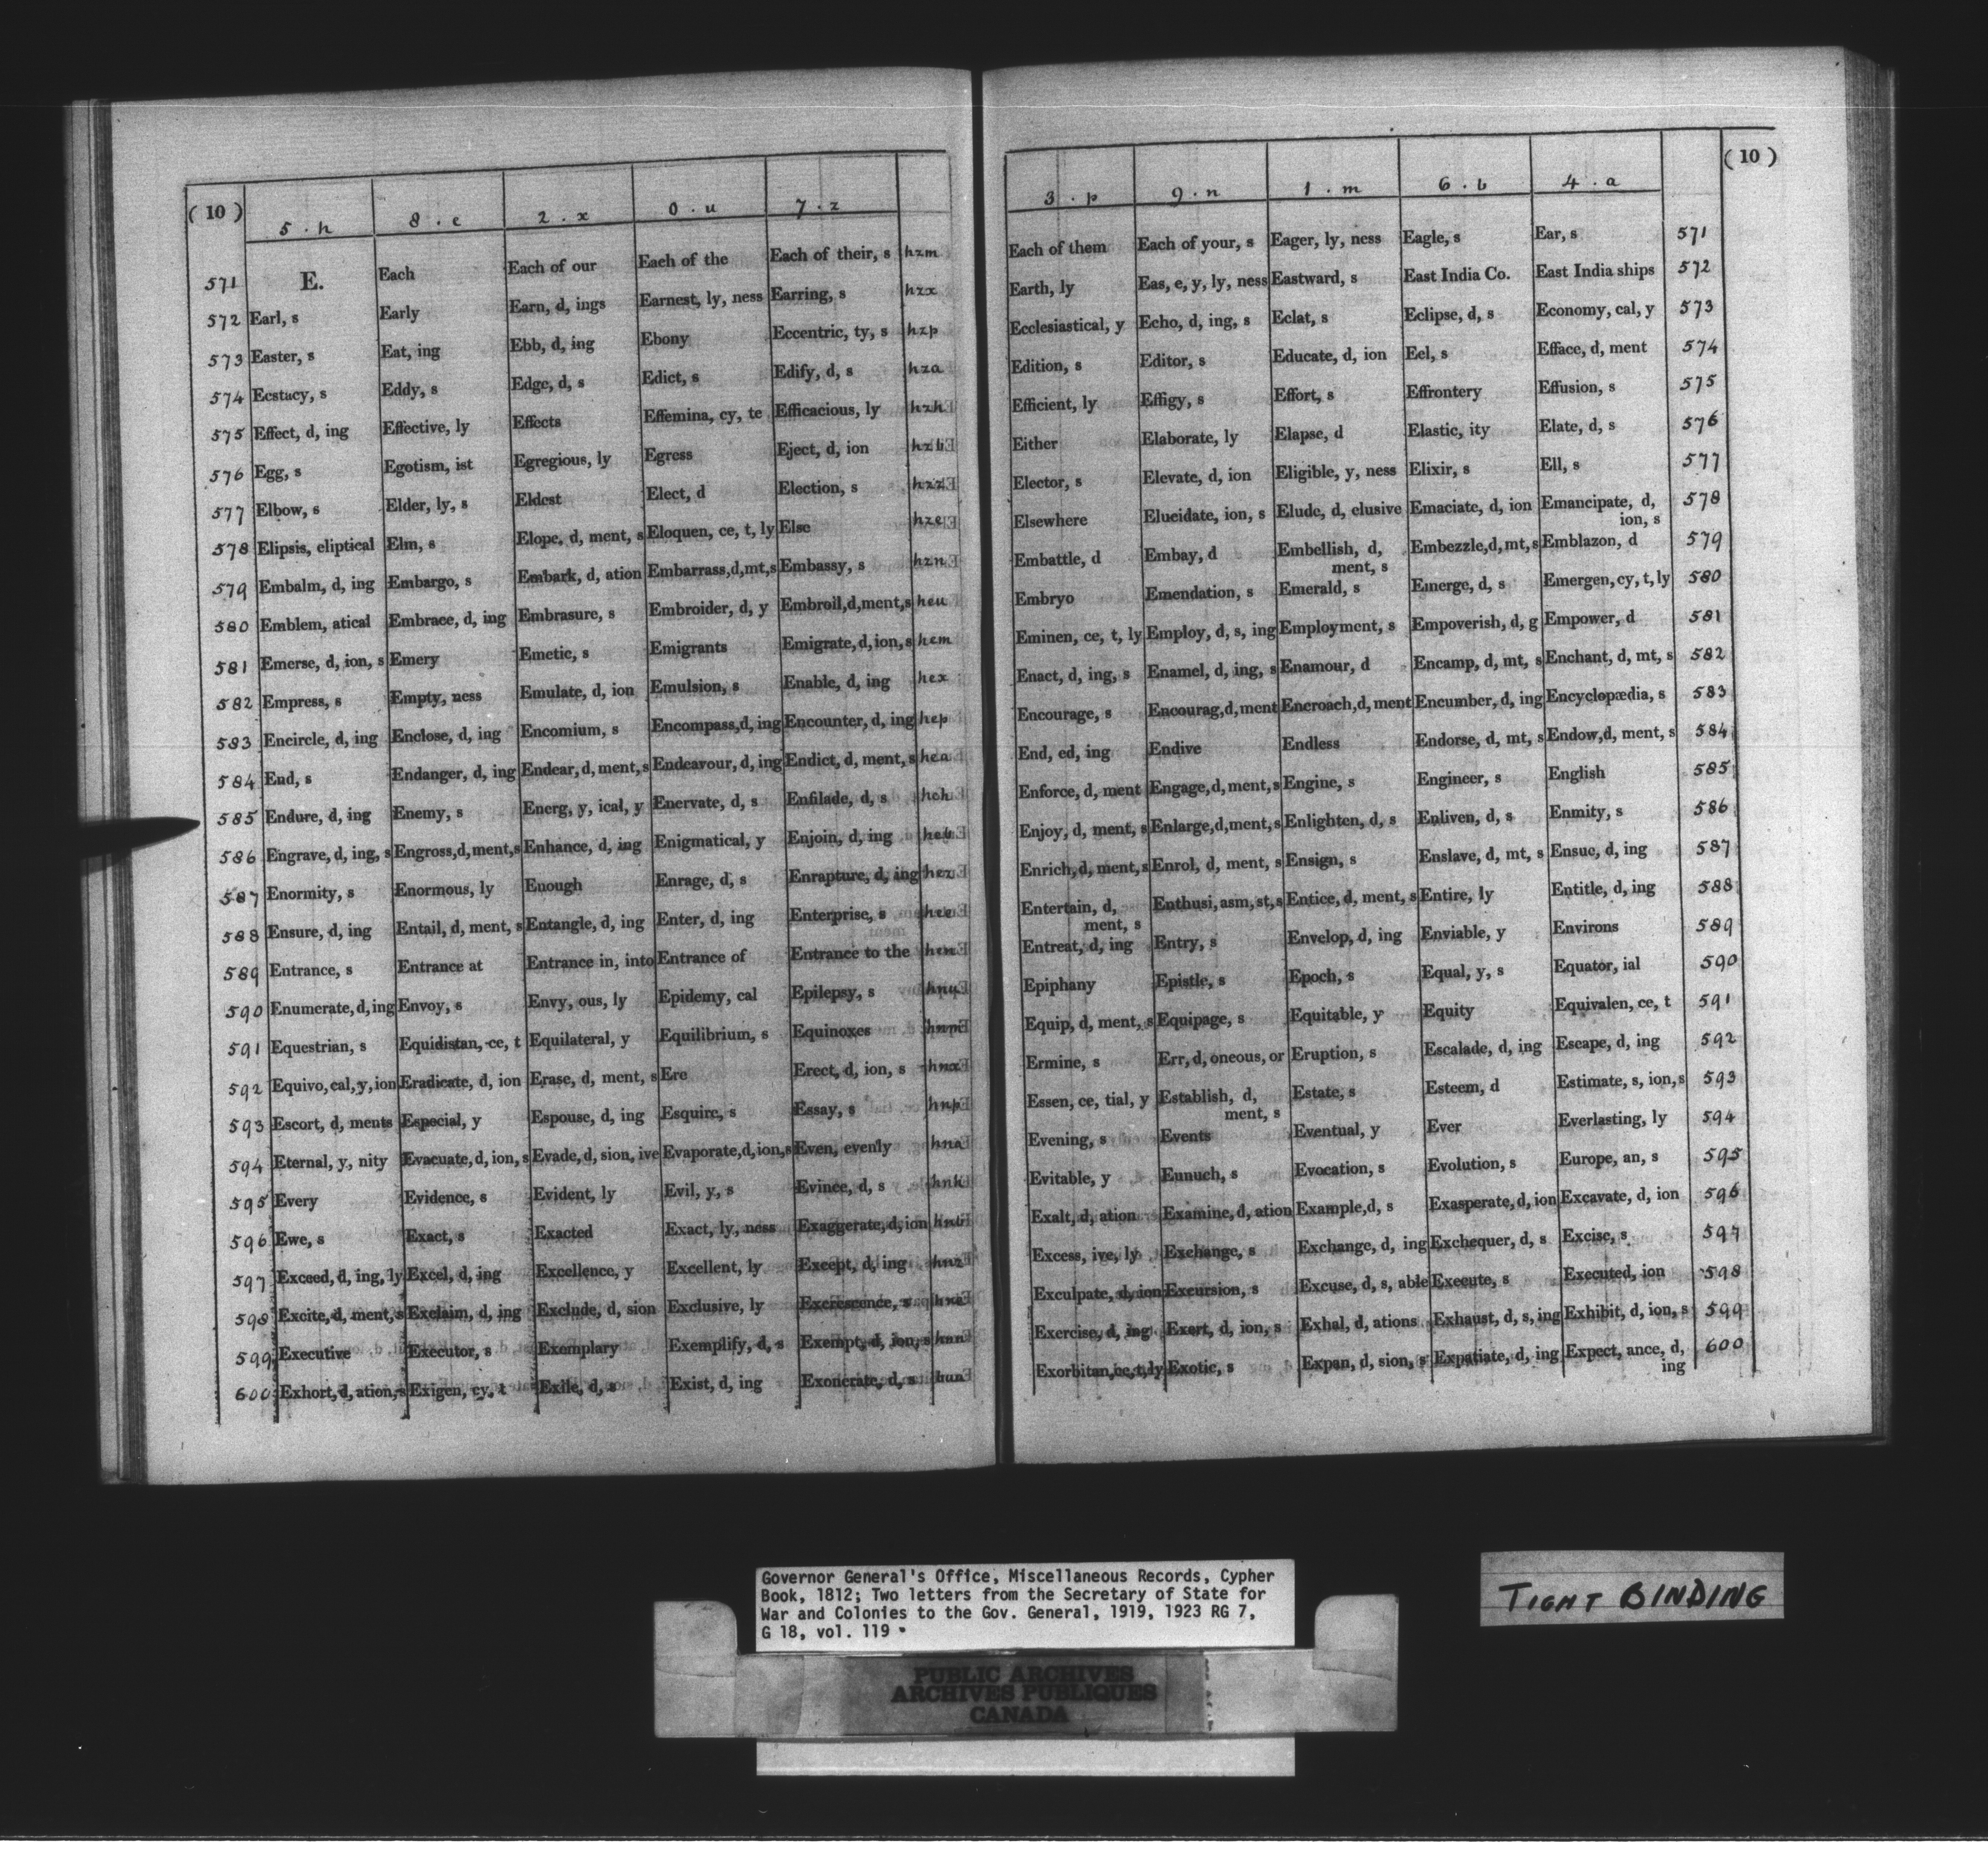 ( 10 ) 5 . h 8 . e 2 . x 0 . u 7 . z
571 E. Each Each of our Each of the Each of their, s hzm
572 Earl, s Early Earn, d, ings Earnest, ly, ness Earring, s hzx
573 Easter, s Eat, ing Ebb, d, ing Ebony Eccentric, ty, s hzp
574 Ecstacy, s Eddy, s Edge, d, s Edict, s Edify, d, s hza
575 Effect, d, ing Effective, ly Effects Effemina, cy, te Efficacious, ly hzh
576 Egg, s Egotism, ist Egregious, ly Egress Eject, d, ion hzb
577 Elbow, s Elder, ly, s Eldest Elect, d Election, s hzz
578 Elipsis, eliptical Elm, s Elope, d, ment, s Eloquen, ce, t, ly Else hze
579 Embalm, d, ing Embargo, s Embark, d, ation Embarrass,d,mt,s Embassy, s hzn
580 Emblem, atical Embrace, d, ing Embrasure, s Embroider, d, y Embroil,d,ment,s heu
581 Emerse, d, ion, s Emery Emetic, s Emigrants Emigrate,d,ion,s hem
582 Empress, s Empty, ness Emulate, d, ion Emulsion, s Enable, d, ing hex
583 Encircle, d, ing Enclose, d, ing Encomium, s Encompass,d, ing Encounter, d, ing hep
584 End, s Endanger, d, ing Endear, d, ment, s Endeavour, d, ing Endict, d, ment, s hea
585 Endure, d, ing Enemy, s Energ, y, ical, y Enervate, d, s Enfilade, d, s heh
586 Engrave, d, ing, s Engross,d,ment,s Enhance, d, ing Enigmatical, y Enjoin, d, ing heb
587 Enormity, s Enormous, ly Enough Enrage, d, s Enrapture, d, ing hez
588 Ensure, d, ing Entail, d, ment, s Entangle, d, ing Enter, d, ing Enterprise, s hee
589 Entrance, s Entrance at Entrance in, into Entrance of Entrance to the hen
590 Enumerate, d, ing Envoy, s Envy, ous, ly Epidemy, cal Epilepsy, s hnu
591 Equestrian, s Equidistan, ce, t Equilateral, y Equilibrium, s Equinoxes hnm
592 Equivo, cal, y, ion Eradicate, d, ion Erase, d, ment, s Ere Erect, d, ion, s hnx
593 Escort, d, ments Especial, y Espouse, d, ing Esquire, s Essay, s hnp
594 Eternal, y, nity Evacuate, d, ion, s Evade, d, sion, ive Evaporate,d,ion,s Even, evenly hna
595 Every Evidence, s Evident, ly Evil, y, s Evince, d, s hnh
596 Ewe, s Exact, s Exacted Exact, ly, ness Exaggerate, d, ion hnb
597 Exceed, d, ing, ly Excel, d, ing Excellence, y Excellent, ly Except, d, ing hnz
598 Excite, d, ment, s Exclaim, d, ing Exclude, d, sion Exclusive, ly Excrescence, s hne
599 Executive Executor, s Exemplary Exemplify, d, s Exempt, d, ion, s hnn
600 Exhort, d, ation, s Exigen, cy, t Exile, d, s Exist, d, ing Exonerate, d, s
3 . p 9 . n 1 . m 6 . b 4 . a ( 10 )
Each of them Each of your, s Eager, ly, ness Eagle, s Ear, s 571
Earth, ly Eas, e, y, ly, ness Eastward, s East India Co. East India ships 572
Ecclesiastical, y Echo, d, ing, s Eclat, s Eclipse, d, s Economy, cal, y 573
Edition, s Editor, s Educate, d, ion Eel, s Efface, d, ment 574
Efficient, ly Effigy, s Effort, s Effrontery Effusion, s 575
Either Elaborate, ly Elapse, d Elastic, ity Elate, d, s 576
Elector, s Elevate, d, ion Eligible, y, ness Elixir, s Ell, s 577
Elsewhere Elucidate, ion, s Elude, d, elusive Emaciate, d, ion Emancipate, d, ion, s 578
Embattle, d Embay, d Embellish, d, ment, s Embezzle,d,mt,s Emblazon, d 579
Embryo Emendation, s Emerald, s Emerge, d, s Emergen, cy, t, ly 580
Eminen, ce, t, ly Employ, d, s, ing Employment, s Empoverish, d, g Empower, d 581
Enact, d, ing, s Enamel, d, ing, s Enamour, d Encamp, d, mt, s Enchant, d, mt, s 582
Encourage, s Encourag,d,ment Encroach,d,ment Encumber, d, ing Encyclopædia, s 583
End, ed, ing Endive Endless Endorse, d, mt, s Endow,d, ment, s 584
Enforce, d, ment Engage,d,ment,s Engine, s Engineer, s English 585
Enjoy, d, ment, s Enlarge,d,ment,s Enlighten, d, s Enliven, d, s Enmity, s 586
Enrich, d, ment, s Enrol, d, ment, s Ensign, s Enslave, d, mt, s Ensue, d, ing 587
Entertain, d, ment, s Enthusi, asm, st, s Entice, d, ment, s Entire, ly Entitle, d, ing 588
Entreat, d, ing Entry, s Envelop, d, ing Enviable, y Environs 589
Epiphany Epistle, s Epoch, s Equal, y, s Equator, ial 590
Equip, d, ment, s Equipage, s Equitable, y Equity Equivalen, ce, t 591
Ermine, s Err, d, oneous, or Eruption, s Escalade, d, ing Escape, d, ing 592
Essen, ce, tial, y Establish, d, ment, s Estate, s Esteem, d Estimate, s, ion,s 593
Evening, s Events Eventual, y Ever Everlasting, ly 594
Evitable, y Eunuch, s Evocation, s Evolution, s Europe, an, s 595
Exalt, d, ation Examine, d, ation Example,d, s Exasperate, d, ion Excavate, d, ion 596
Excess, ive, ly Exchange, s Exchange, d, ing Exchequer, d, s Excise, s 597
Exculpate, d, ion Excursion, s Excuse, d, s, able Execute, s Executed, ion 598
Exercise, d, ing Exert, d, ion, s Exhal, d, ations Exhaust, d, s, ing Exhibit, d, ion, s 599
Exorbitan,ce,t,ly Exotic, s Expan, d, sion, s Expatiate, d, ing Expect, ance, d, ing 600
Governor General's Office, Miscellaneous Records, Cypher
Book, 1812; Two letters from the Secretary of State for
War and Colonies to the Gov. General, 1919, 1923 RG 7,
G 18, vol. 119
TIGHT BINDING
PUBLIC ARCHIVES
ARCHIVES PUBLIQUES
CANADA